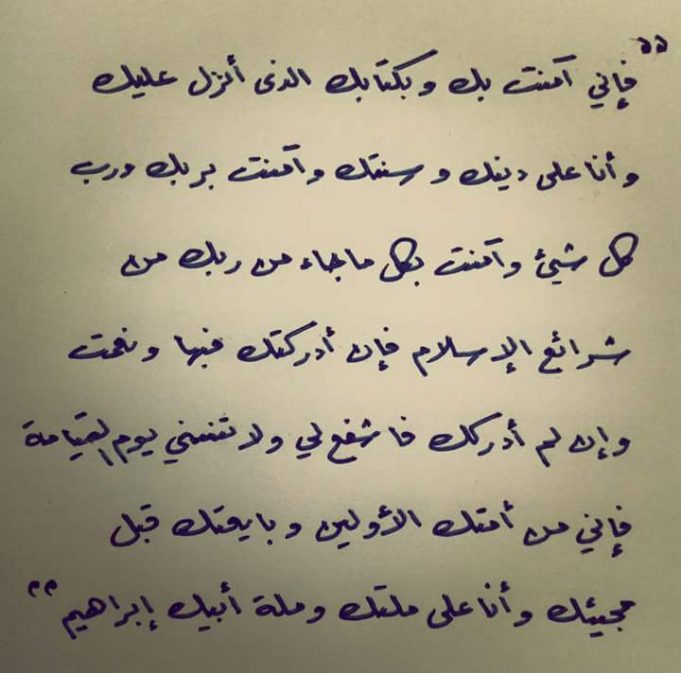 "فإني آمنت بك و بكتابك الذى أنزل عليك
و أنا على دينك و سنتك و آمنت بربك ورب
كل شيئ و آمنت بكل ما جاء من ربك من
شرائع الإسلام فإن أدركتك فبها و نعمت
و إن لم أدركك فاشفع لي ولا تنسني يوم القيامة
فإني من أمتك الأولين و بايعتك قبل
مجيئك و أنا على ملتك و ملة أبيك إبراهيم"